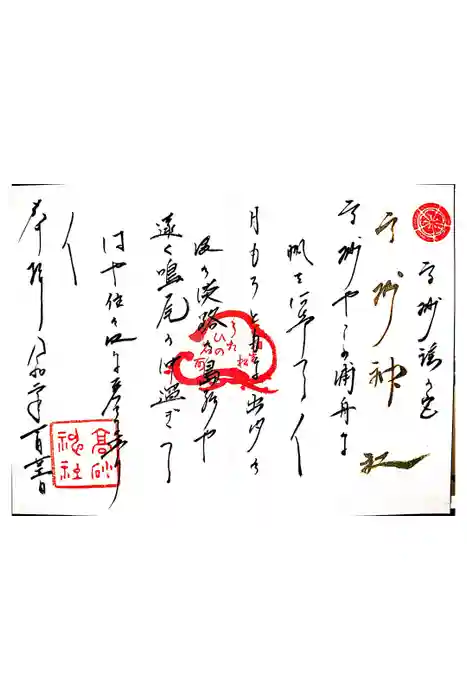 高砂謡の
高砂神社
高砂やこの浦舟に
帆を上げて〳〵
月もろともに出汐の
波の淡路の島影や
遠く鳴尾の沖過ぎて
はや住の江に着きにけり
〳〵
奉拝 令和二年
高砂
神社